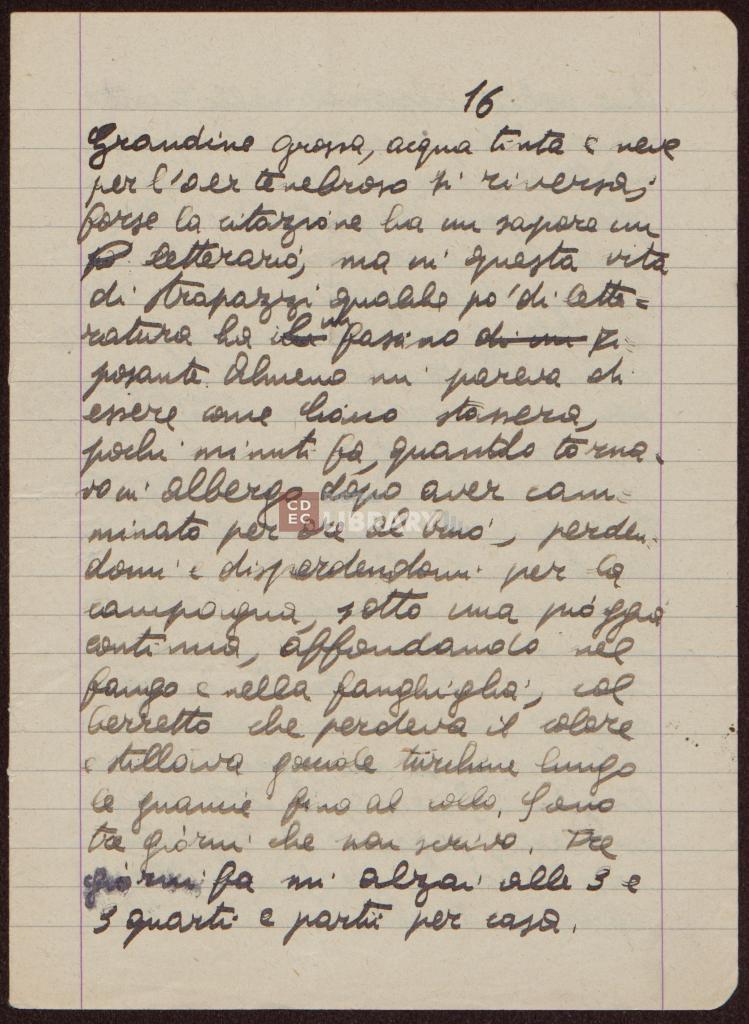 16
Grandine grossa, acqua tinta e neve
per l'aer tenebroso si riversa;
forse la citazione ha un sapore un
p letterario, ma in questa vita
di strapazzi qualche po' di lette=
ratura ha un fascino di un ri=
posante. Almeno mi pareva di
essere come Ciacco stassera,
pochi minuti fa, quando torna-
vo in albergo dopo aver cam=
minato per ore al buio, perden-
domi e disperdendomi per la
campagna, sotto una pioggia
continua, affondando nel
fango e nella fanghiglia, col
berretto che perdeva il colore
e stillava gocciole turchine lungo
le guancie fino al collo. Sono
tre giorni che non scrivo. Tre
giorni fa mi alzai alle 3 e
3 quarti e partii per casa.
CDEC LIBRARY